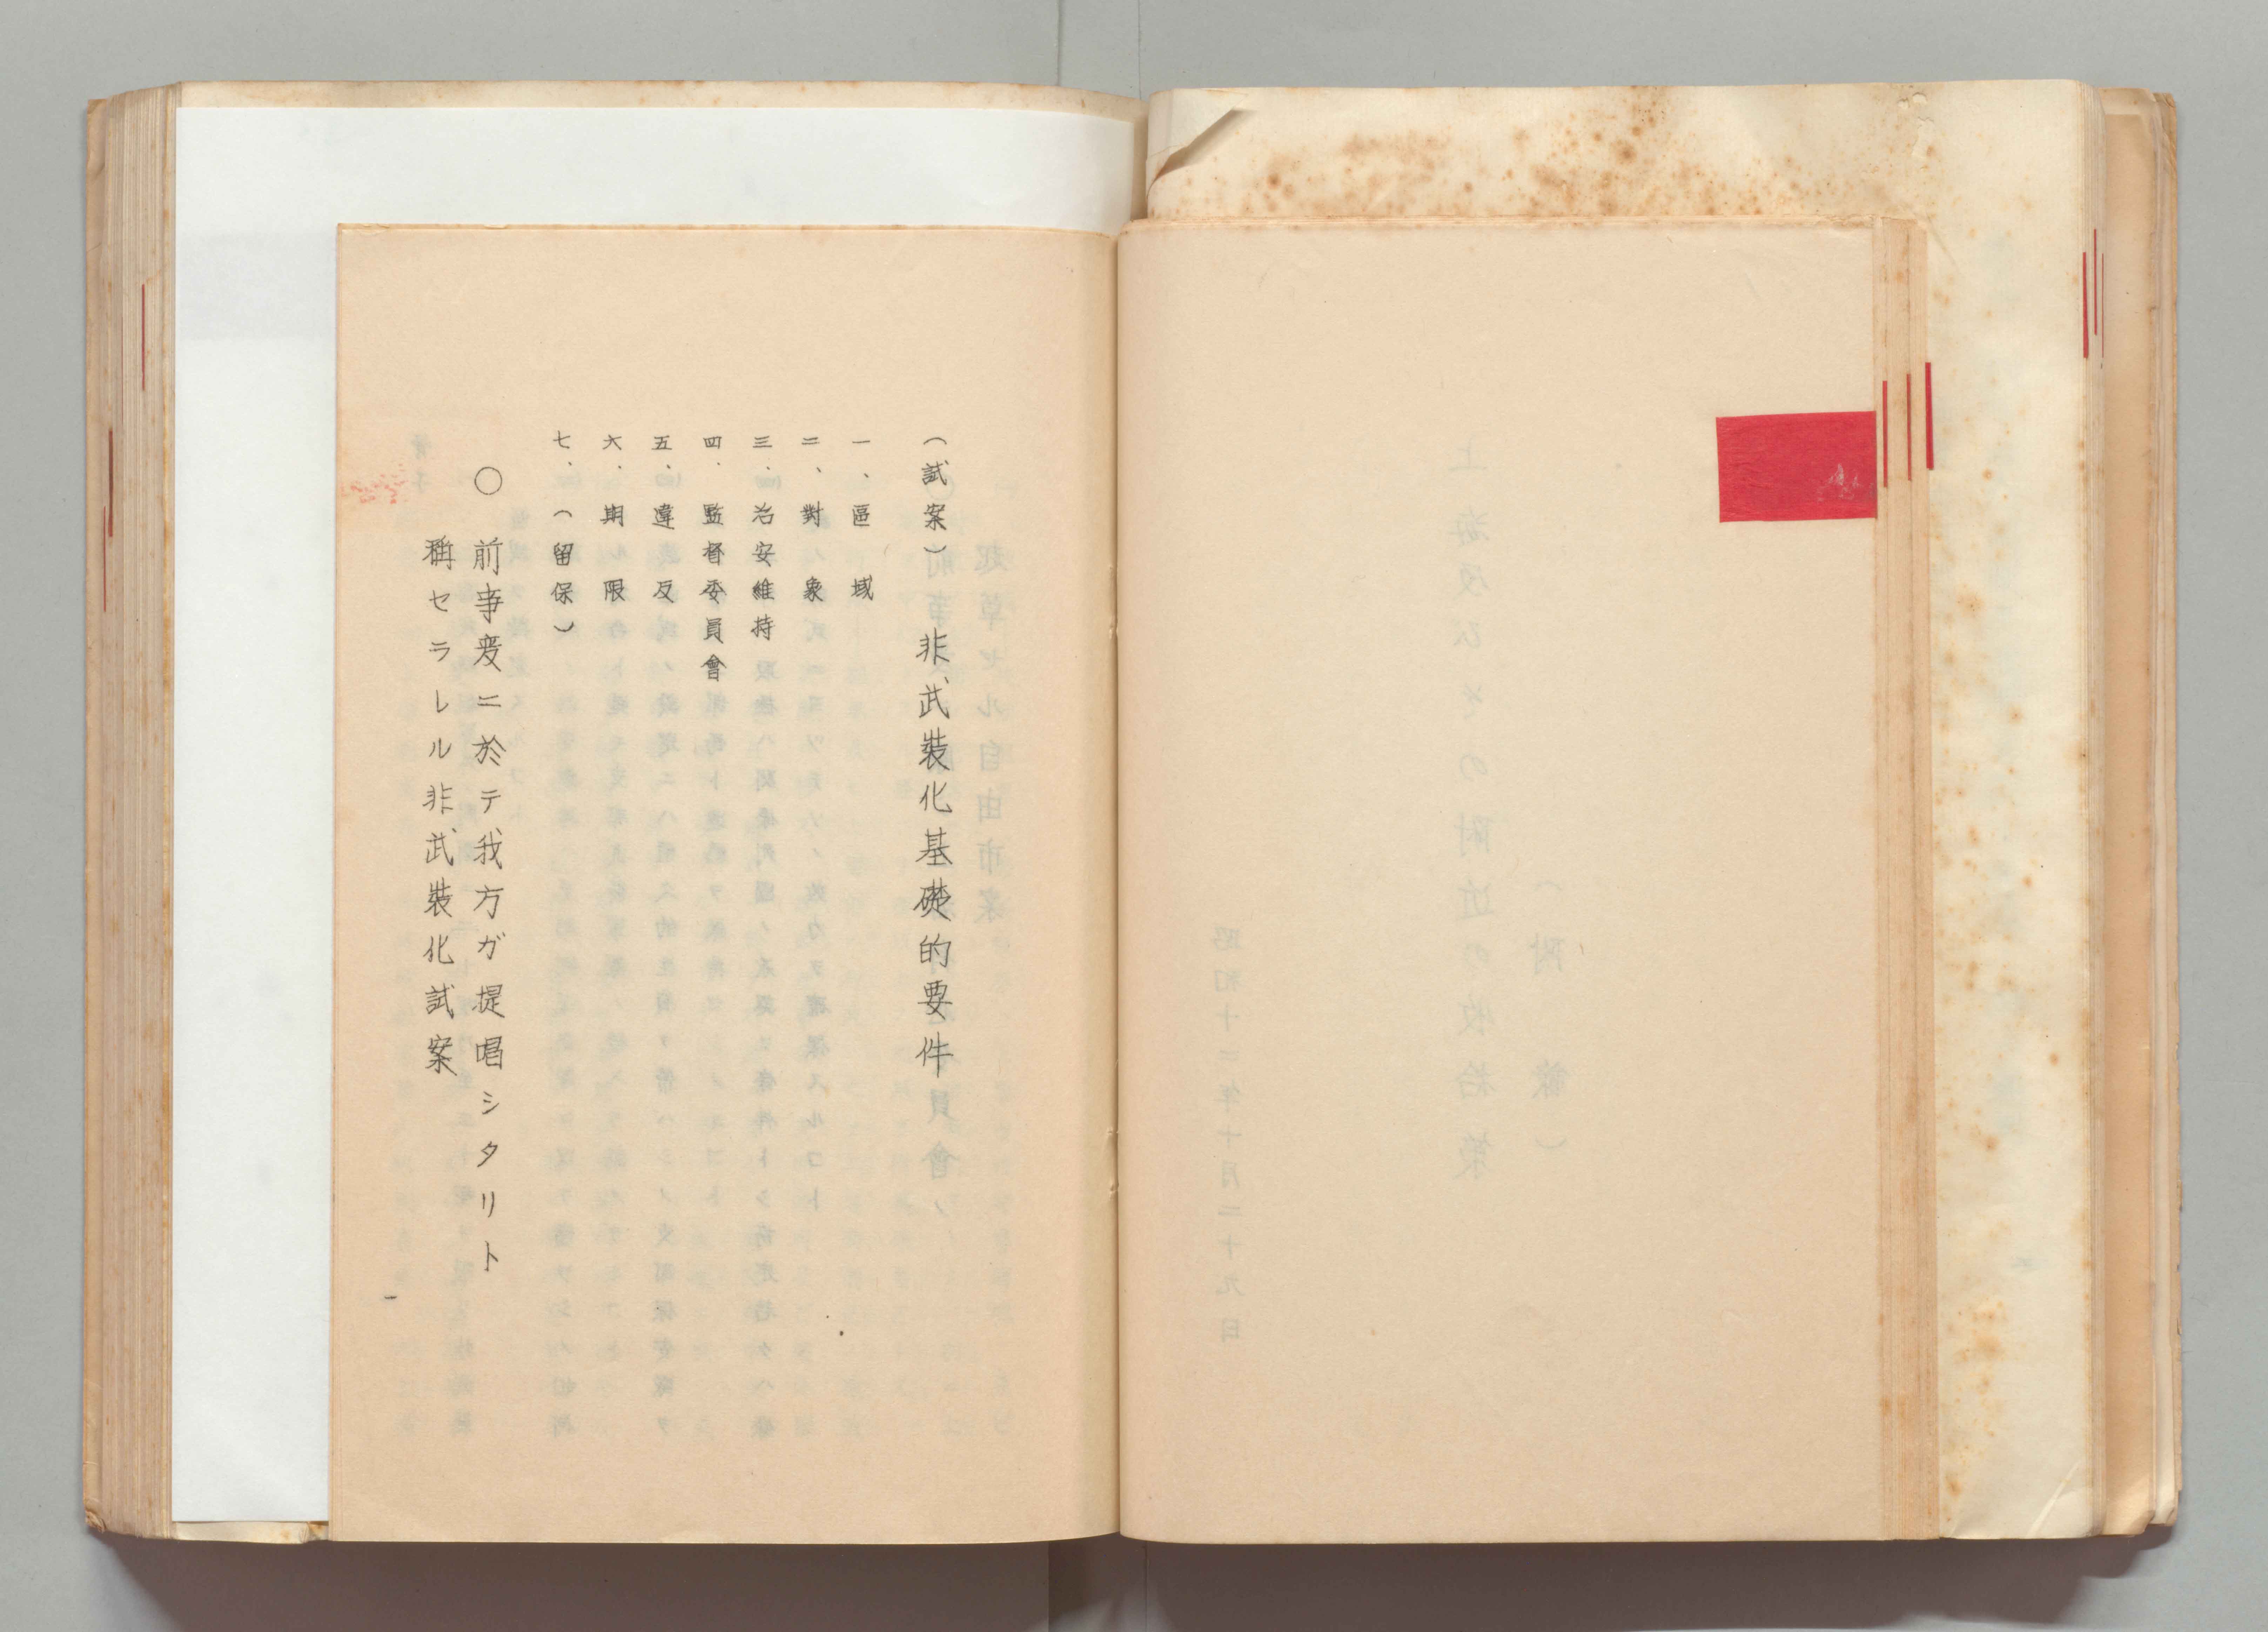 (試案) 非武裝化基礎的要件
一、區域
二、對象
三、治安維持
四、監督委員會
五、違反
六、期限
七、(留保)
○前事変ニ於テ我方ガ提唱シタリト
稱セラレル非武裝化試案